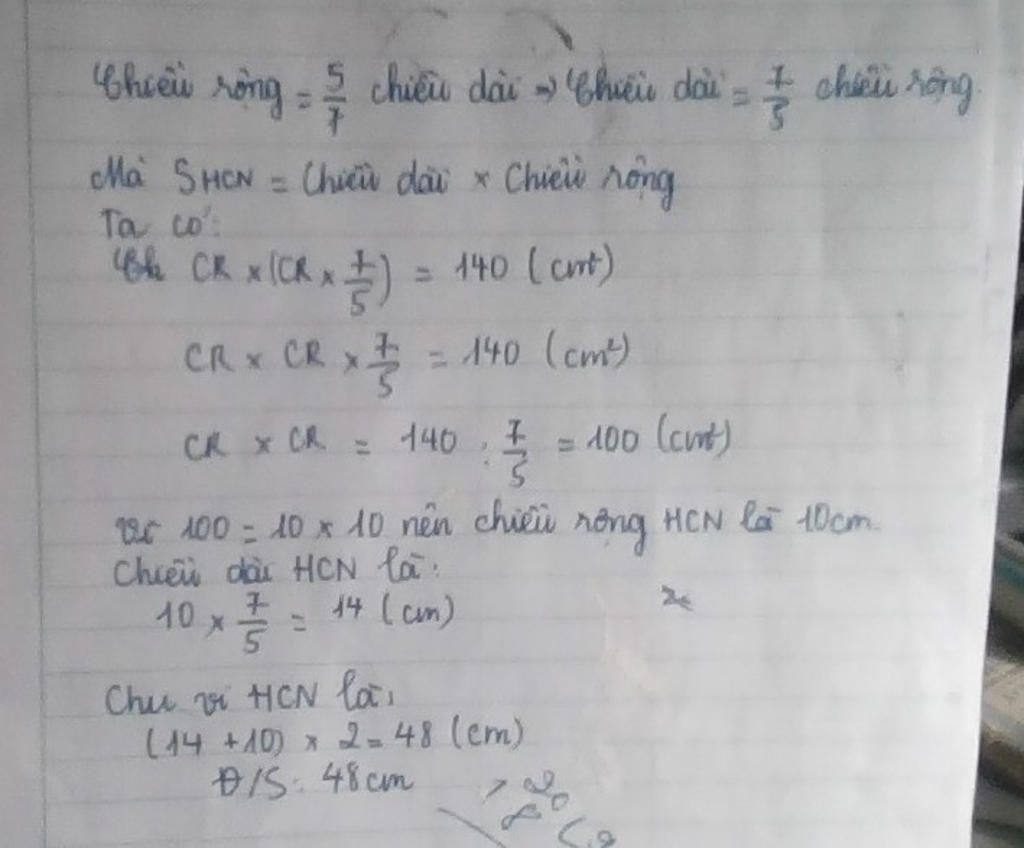 Chiều rộng = 5/7 chiều dài => Chiều dài = 7/5 chiều rộng.
Mà SHCN = Chiều dài × Chiều rộng
Ta có:
CR × (CR × 7/5) = 140 (cm²)
CR × CR × 7/5 = 140 (cm²)
CR × CR = 140 : 7/5 = 100 (cm²)
Vì 100 = 10 × 10 nên chiều rộng HCN là 10cm.
Chiều dài HCN là:
10 × 7/5 = 14 (cm)
Chu vi HCN là:
(14 + 10) × 2 = 48 (cm)
Đ/S: 48cm